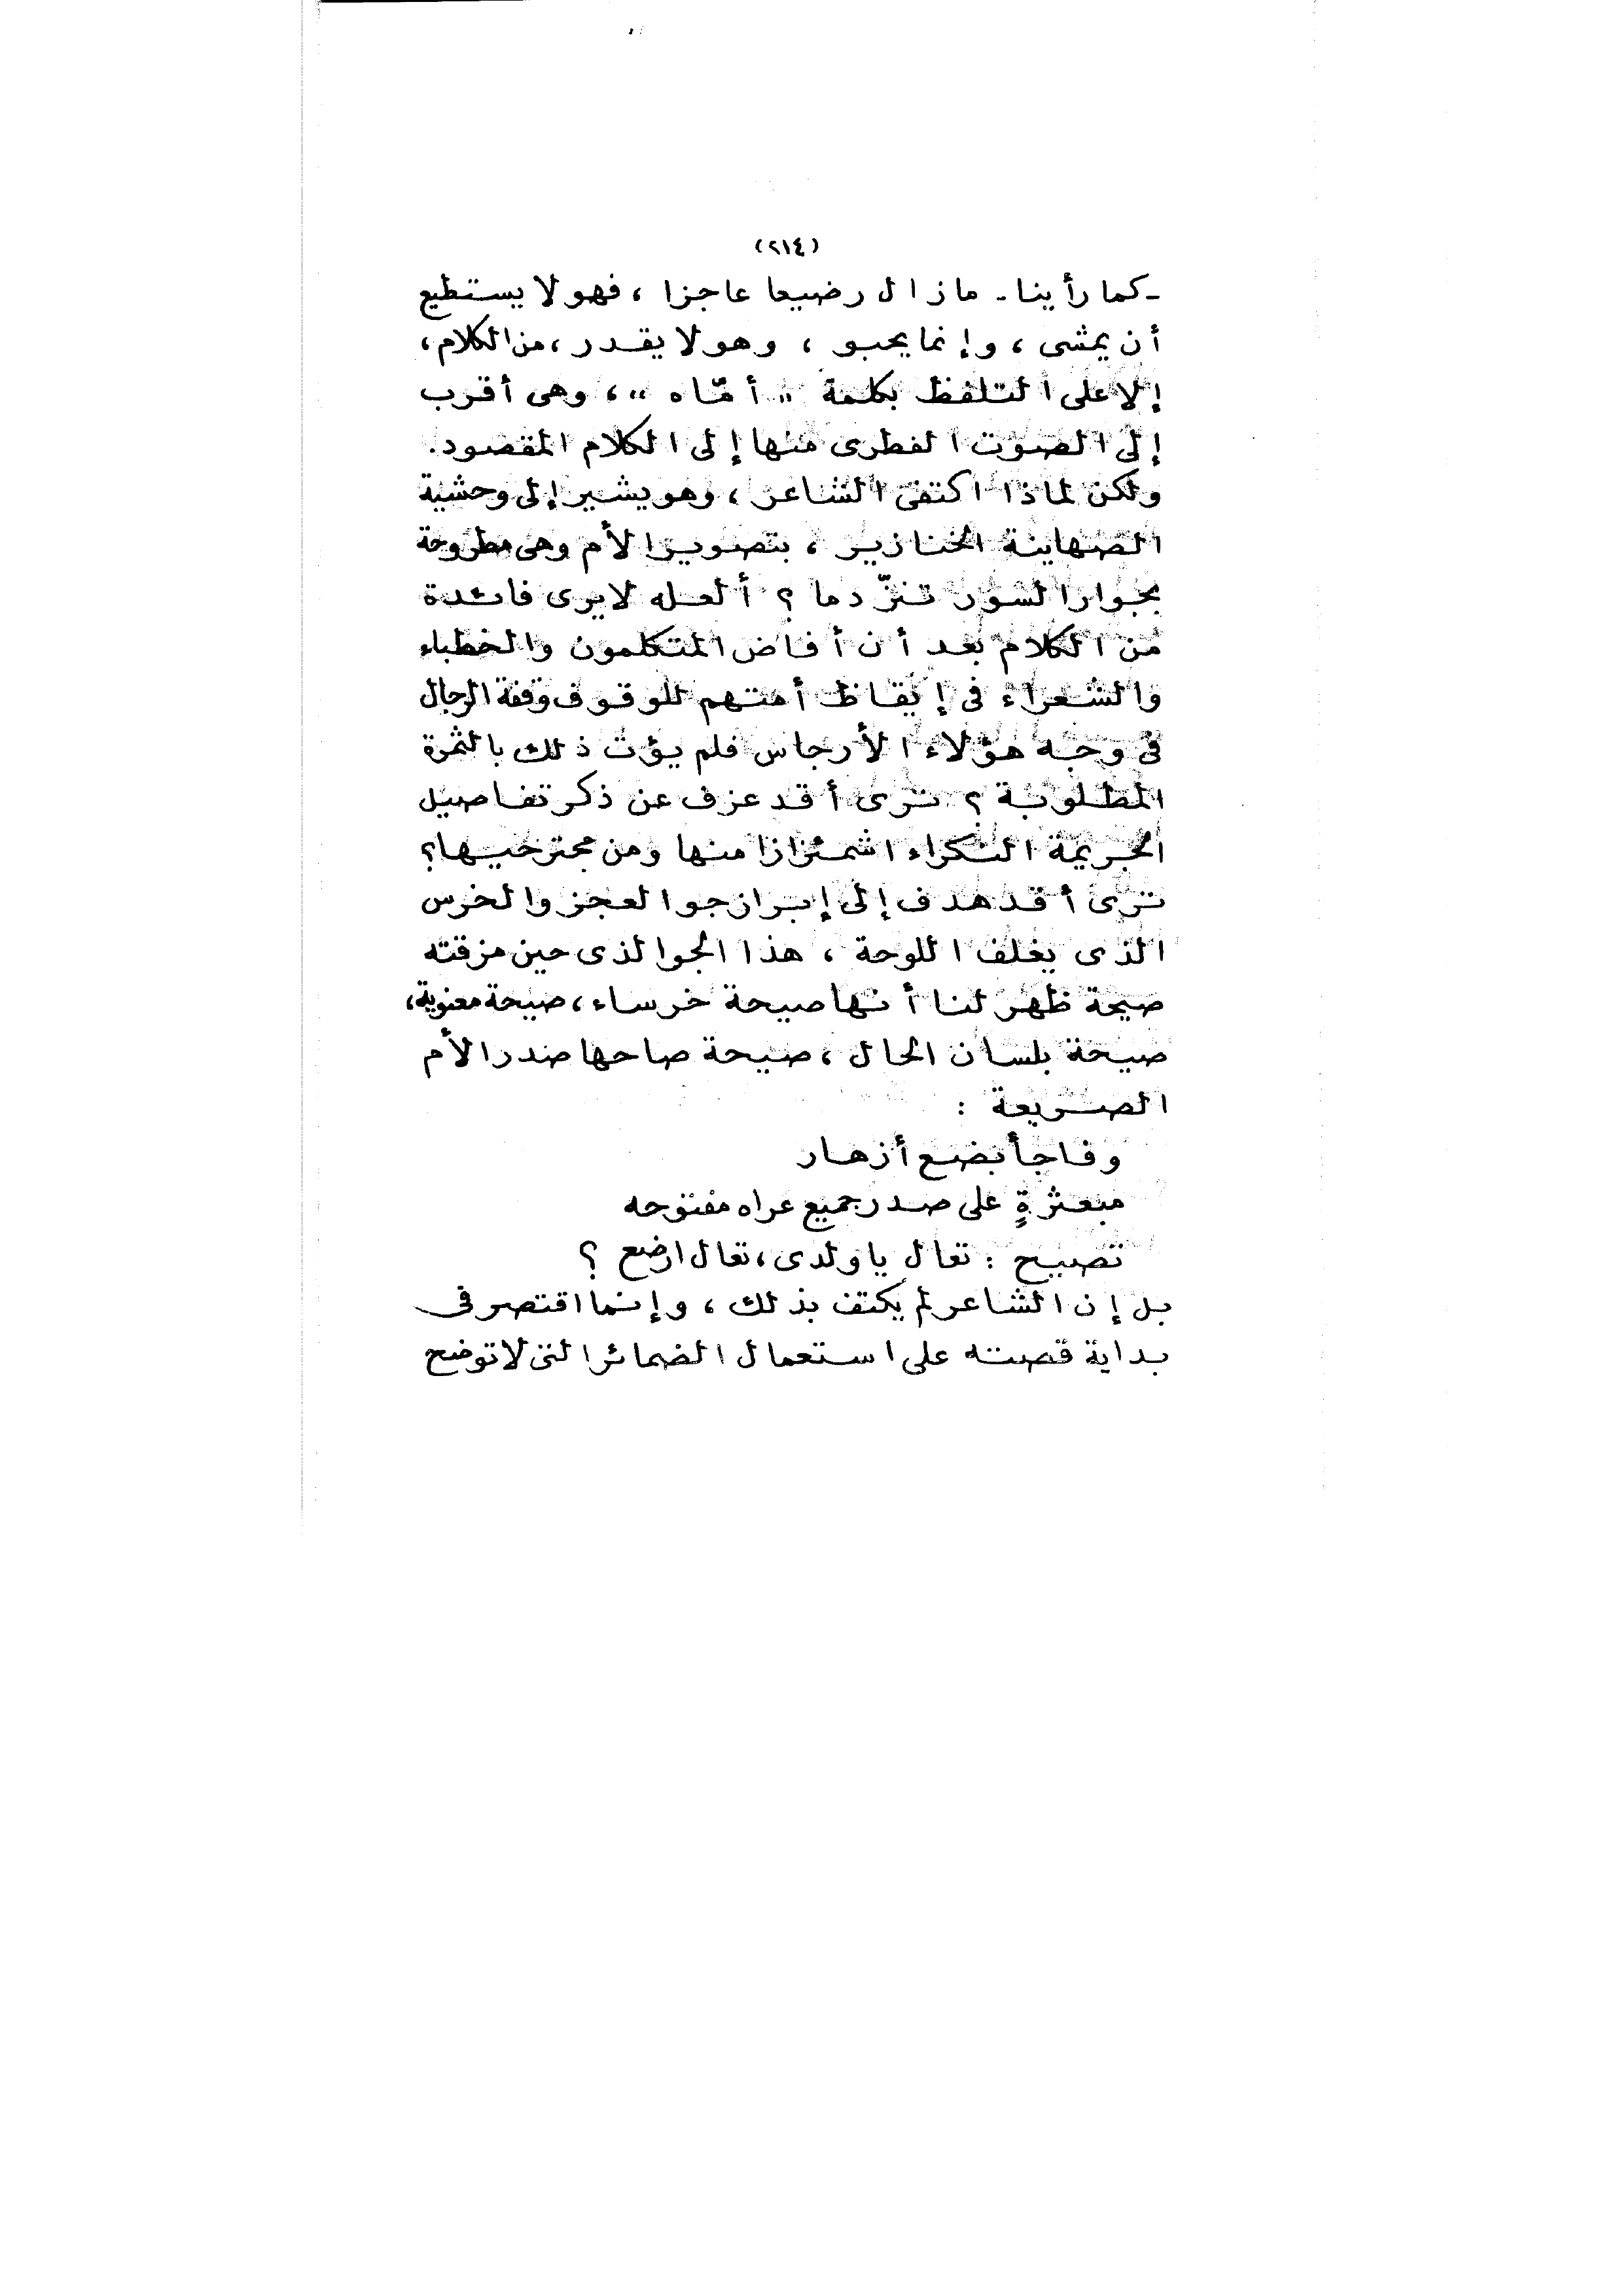 (٢١٤)
ـ كما رأينا ـ ما زال رضيعا عاجزا ، فهو لا يستطيع
أن يمشى ، وإنما يحبو ، وهو لا يقدر ، من الكلام ،
إلا على التلفظ بكلمة " أمّاه " ، وهى أقرب
إلى الصوت الفطرى منها إلى الكلام المقصود .
ولكن لماذا اكتفى الشاعر ، وهو يشير إلى وحشية
الصهاينة الخنازير ، بتصوير الأم وهى مطروحة
بجوار السور تنزّ دما ؟ ألعله لا يرى فائدة
من الكلام بعد أن أفاض المتكلمون والخطباء
والشعراء فى إيقاظ أمتهم للوقوف وقفة الرجال
فى وجه هؤلاء الأرجاس فلم يؤت ذلك بالثمرة
المطلوبة ؟ ترى أقد عزف عن ذكر تفاصيل
الجريمة النكراء اشمئزازا منها ومن مجترحيها ؟
ترى أقد هدف إلى إبراز جو العجز والخرس
الذى يغلف اللوحة ، هذا الجو الذى حين مزقته
صيحة ظهر لنا أنها صيحة خرساء ، صيحة معنوية ،
صيحة بلسان الحال ، صيحة صاحها صدر الأم
الصريعة :
وفاجأ بضع أزهار
مبعثرةٍ على صدر جميع عراه مفتوحه
تصيح : تعال يا ولدى ، تعال ارضع ؟
بل إن الشاعر لم يكتف بذلك ، وإنما اقتصر فى
بداية قصته على استعمال الضمائر التى لا توضح